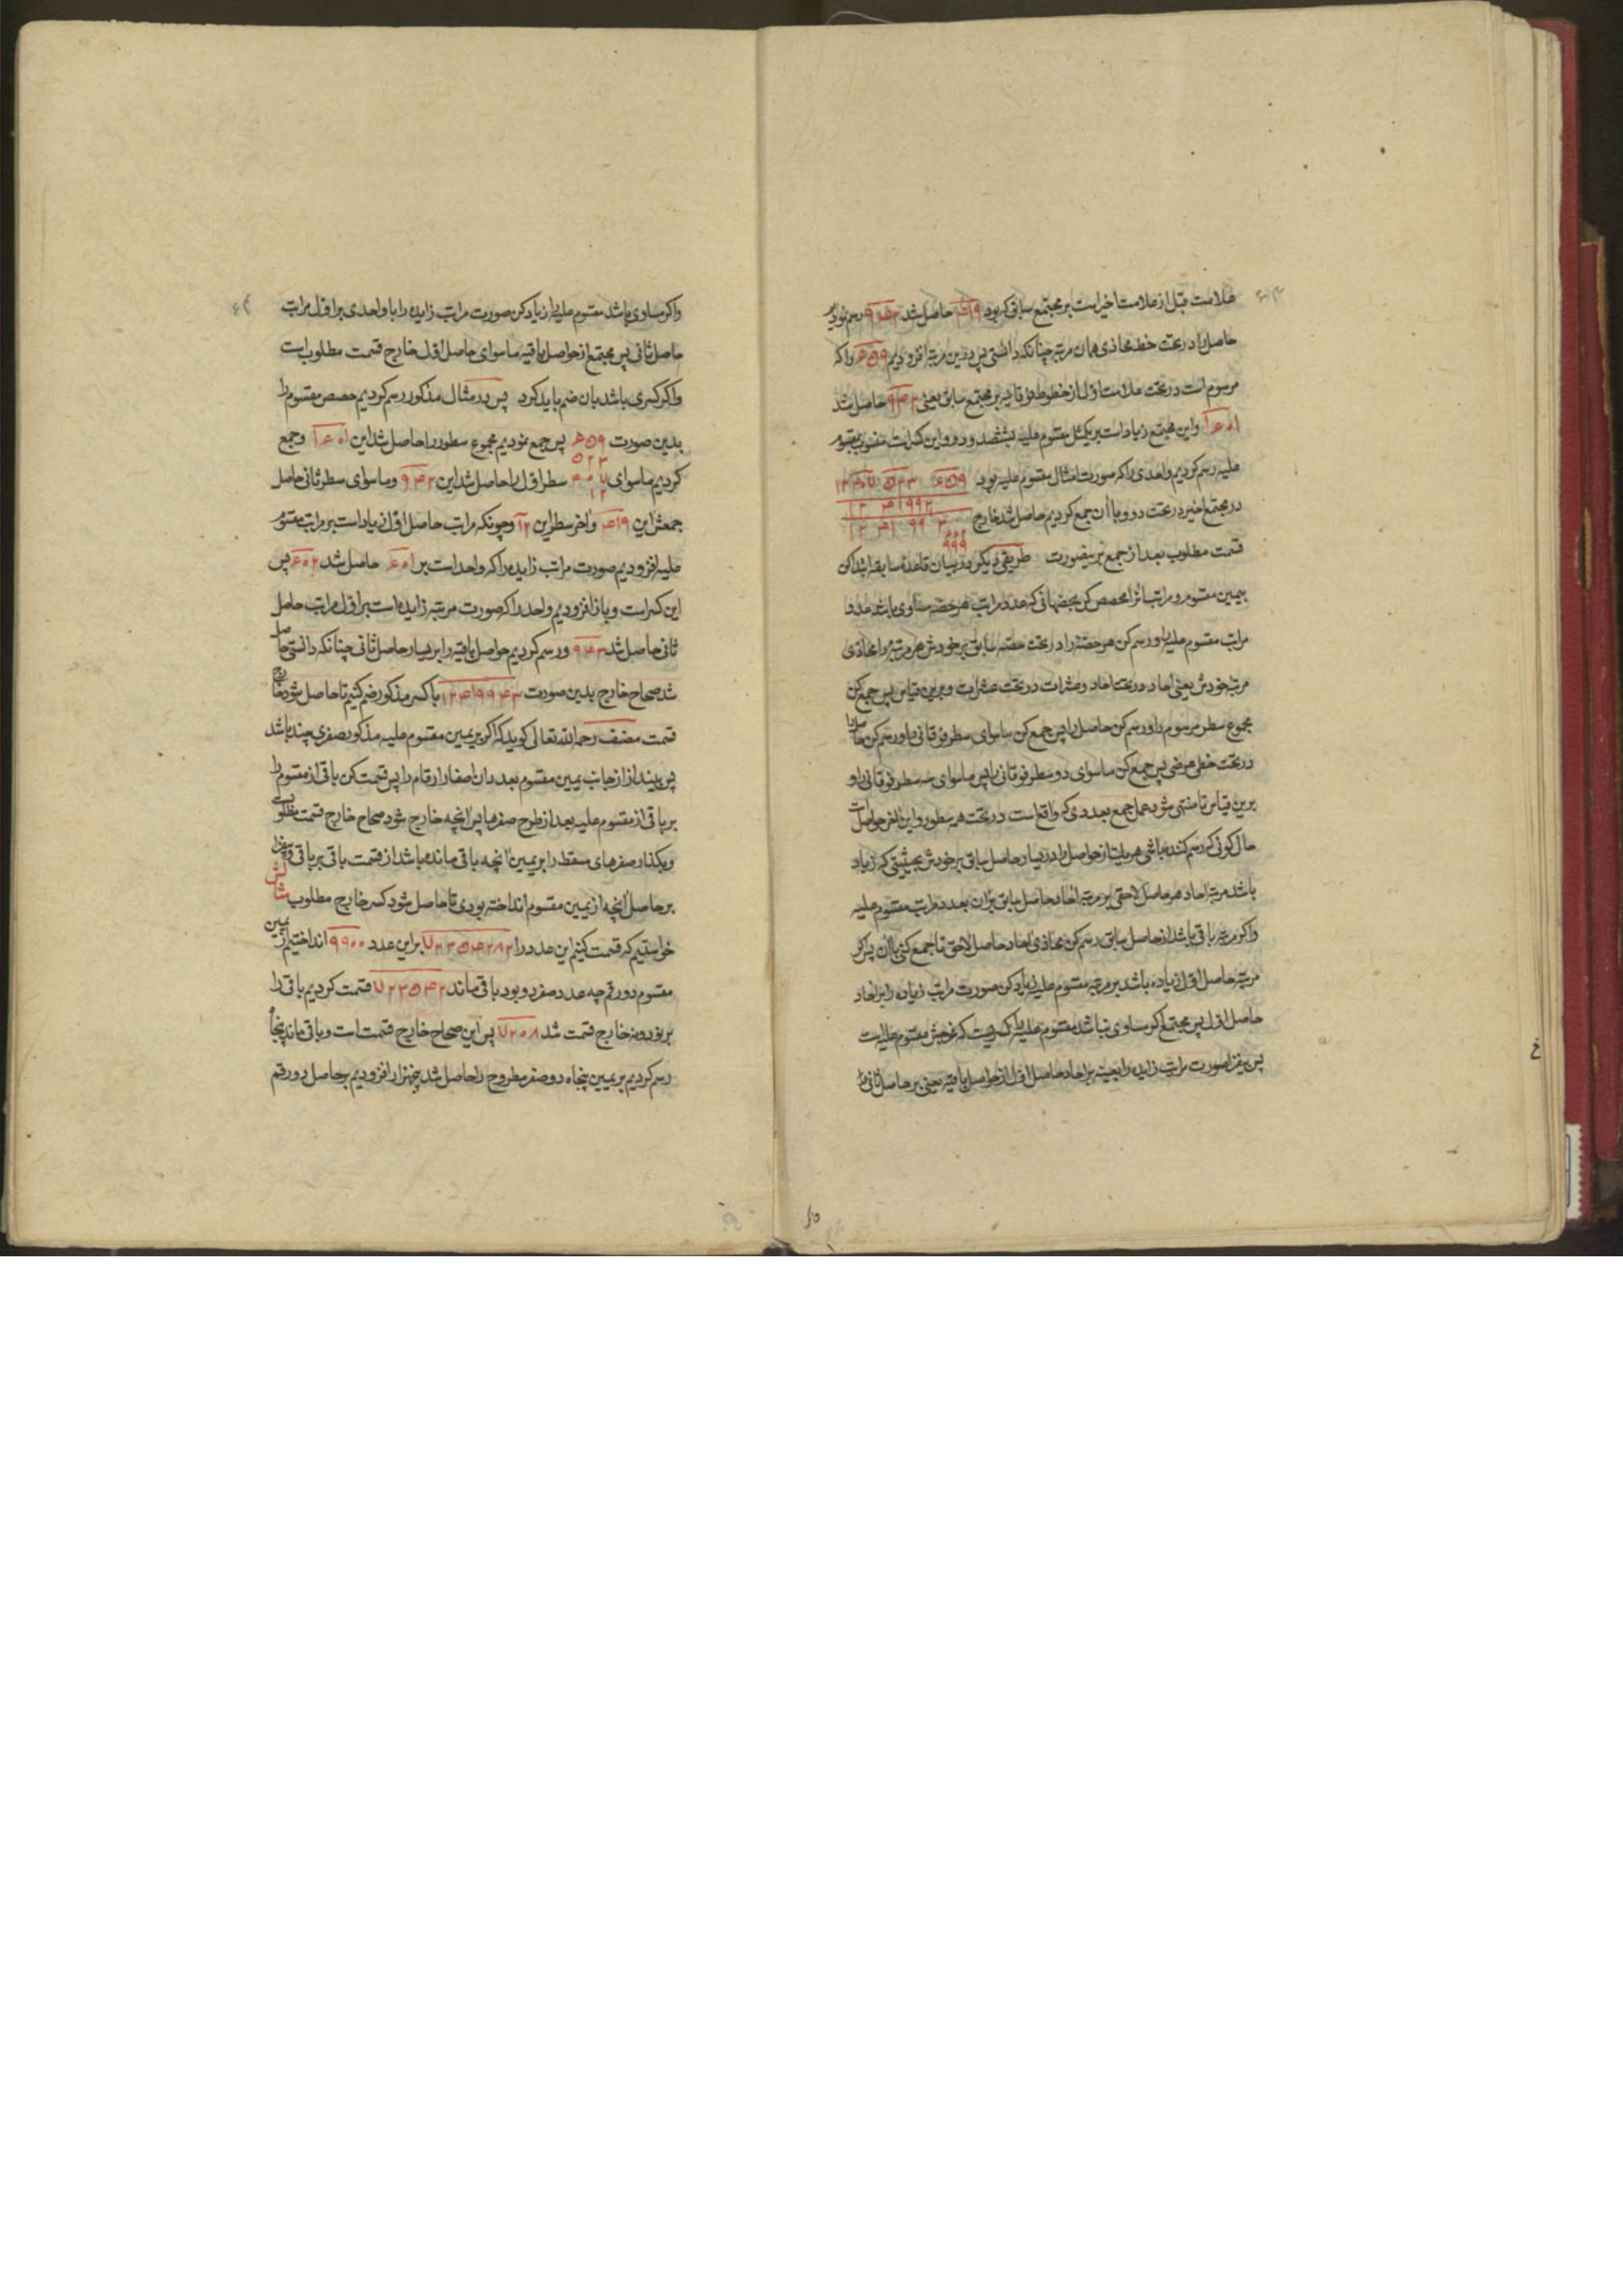 علامت قبل از علامت اخیر است بر مجتمع سابق که بود ۴۱۹ حاصل شد ۹۴۲ رسم نمودیم
حاصل را در تحت خط محاذی همان مرتبه چنانکه دانستی پس بدین مرتبه افزودیم ۴۵۹ را که
مرسوم است در تحت علامت اول از خطوط فوقانیه بر مجتمع سابق یعنی ۹۴۲ حاصل شد
۱۴۰۱ و این مجتمع زیاد است بر یکمثل مقسوم علیه بششصد و دو و این کسر است منسوب بمقسوم
علیه رسم کردیم واحدی را که صورت امثال مقسوم علیه بود
در مجتمع اخیر در تحت دو و با آن جمع کردیم حاصل شد خارج
قسمت مطلوب بعد از جمع برینصورت طریقی دیگر در بیان قاعدهٔ سابقه ابتدا کن
بیمین مقسوم و مراتب آنرا محصص کن بحصهائی که عدد مراتب هر حصه مساوی باشد عدد
مراتب مقسوم علیه را و رسم کن هر حصه را در تحت حصه سابق بر خودش هر مرتبه را محاذی
مرتبه خودش یعنی احاد در تحت احاد و عشرات در تحت عشرات و برین قیاس پس جمع کن
مجموع سطر مرسوم را و رسم کن حاصل را پس جمع کن ماسوای سطر فوقانی را و رسم کن حاصل را
در تحت خطی عرضی پس جمع کن ماسوای دو سطر فوقانی را پس ماسوای سه سطر فوقانی را و
برین قیاس تا منتهی شود عمل جمع بعددی که واقع است در تحت همه سطور و این آخر حواصل است
حال کونی که رسم کننده باشی هر یک از حواصل را در یسار حاصل سابق بر خودش بحیثیتی که زیاد
باشد مرتبه احاد هر حاصل لاحقی بر مرتبه احاد حاصل سابق بر آن بعدد مراتب مقسوم علیه
و اگر مرتبه باقی باشد از حاصل سابق رسم کن محاذی احاد حاصل لاحق تا جمع کنی با آن پس اگر
مرتبه حاصل اول زیاده باشد بر مرتبه مقسوم علیه زیاد کن صورت مراتب زیاده را بر احاد
حاصل اول پس مجتمع اگر مساوی نباشد مقسوم علیه را کسریست که مخرجش مقسوم علیه است
پس بیفزا صورت مراتب زایده را بعینه بر احاد حاصل اول از حواصل باقیه یعنی بر حاصل ثانی
و اگر مساوی باشد مقسوم علیه را زیاد کن صورت مراتب زایده را با واحدی بر اول مراتب
حاصل ثانی پس مجتمع از حواصل باقیه ماسوای حاصل اول خارج قسمت مطلوب است
و اگر کسری باشد بان ضم باید کرد پس در مثال مذکور رسم کردیم حصص مقسوم را
بدین صورت ۴۵۹ پس جمع نمودیم مجموع سطور را حاصل شد این ۱۴۰۱ و جمع
کردیم ماسوای سطر اول را حاصل شد این ۹۴۲ و ماسوای سطر ثانی حاصل
جمعش این ۴۱۹ و آخر سطر این ۱۲ و چونکه مراتب حاصل اول زیاد است بر مراتب مقسوم
علیه افزودیم صورت مراتب زایده را که واحد است بر ۴۰۱ حاصل شد ۴۰۲ پس
این کسر است و باز افزودیم واحد را که صورت مرتبه زایده است بر اول مراتب حاصل
ثانی حاصل شد ۹۴۳ و رسم کردیم حواصل باقیه را بر یسار حاصل ثانی چنانکه دانستی حاصل
شد صحاح خارج بدین صورت ۱۲۴۱۹۹۴۳ با کسر مذکور ضم کنیم تا حاصل شود خارج
قسمت مصنف رحمه الله تعالی کوید که اگر بر یمین مقسوم علیه مذکور صفری چند باشد
پس بینداز از جانب یمین مقسوم بعدد آن اصفار ارقام را پس قسمت کن باقی از مقسوم را
بر باقی از مقسوم علیه بعد از طرح صفرها پس آنچه خارج شود صحاح خارج قسمت مطلوبست
و بکذار صفرهای مسقط را بر یمین آنچه باقی مانده باشد از قسمت باقی بر باقی و بیفزا
بر حاصل آنچه از یمین مقسوم انداخته بودی تا حاصل شود کسر خارج مطلوب مثالش
خواستیم که قسمت کنیم این عدد را ۷۲۳۵۴۲۸۲ بر این عدد ۹۹۰۰ انداختیم از یمین
مقسوم دو رقم چه عدد صفر دو بود باقی ماند ۷۲۳۵۴۲ قسمت کردیم باقی را
بر نود و نه خارج قسمت شد ۷۳۰۸ پس این صحاح خارج قسمت است و باقی ماند پنجاه
رسم کردیم بر یمین پنجاه دو صفر مطروح را حاصل شد پنجهزار افزودیم بر حاصل دو رقم